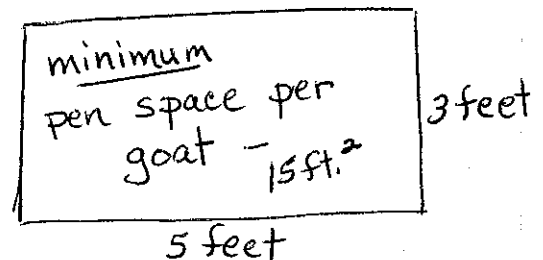 minimum
pen space per
goat - 15 ft.²
3 feet
5 feet